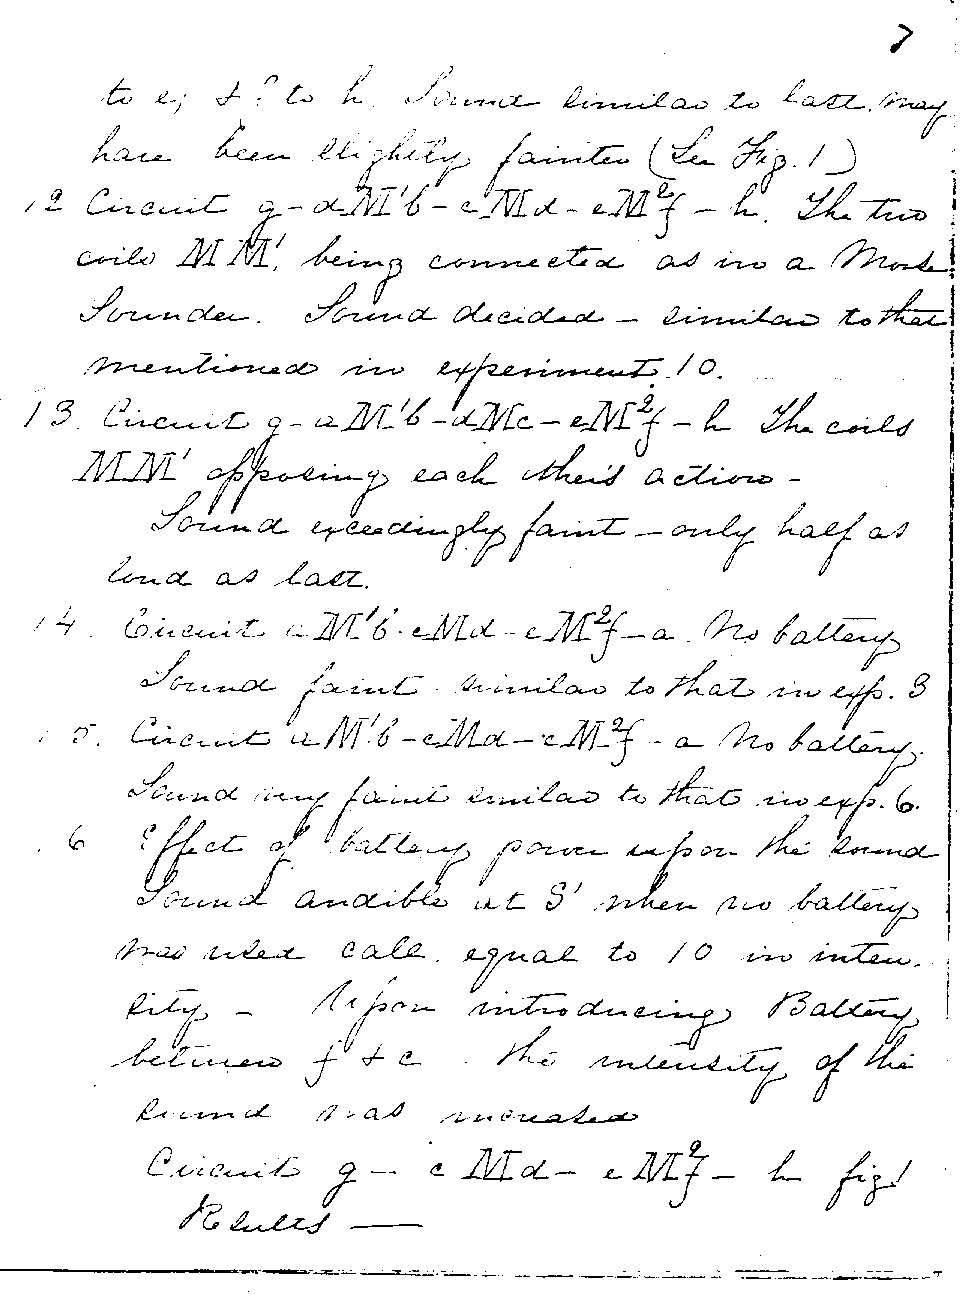 7
to e, & f to h. Sound similar to last. May
have been slightly fainter (See Fig. 1)
12 Circuit g - aM'b - cMd - eM²f - h. The two
coils MM', being connected as in a Morse
Sounder. Sound decided - similar to that
mentioned in experiment. 10.
13. Circuit g - aM'b - dMc - eM²f - h The coils
MM' opposing each other's action -
Sound exceedingly faint - only half as
loud as last.
14. Circuit aM'b - cMd - eM²f - a. No battery
Sound faint similar to that in exp. 3
15. Circuit aM'b - cMd - eM²f - a No battery.
Sound very faint similar to that in exp. 6.
16 Effect of battery power upon the sound
Sound audible at S' when no battery
was used call equal to 10 in inten-
sity - Upon introducing Battery
between f & c the intensity of the
sound was increased
Circuit g - cMd - eM²f - h fig 1
Results —